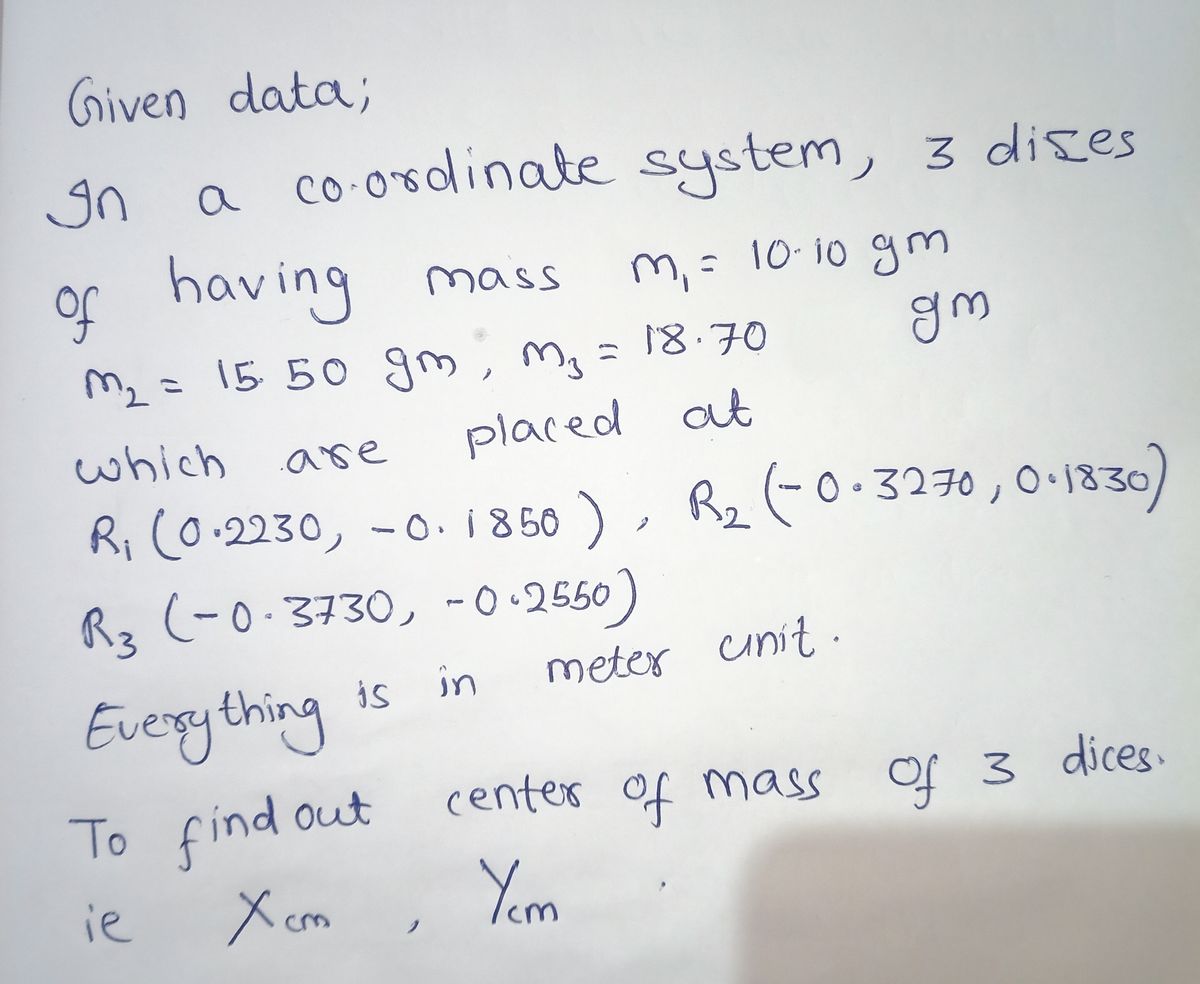 Given data;
In a co-ordinate system, 3 dices
of having mass m₁ = 10.10 gm
m₂ = 15.50 gm, m₃ = 18.70 gm
which are placed at
R₁ (0.2230, -0.1850), R₂ (-0.3270, 0.1830)
R₃ (-0.3730, -0.2550)
Everything is in meter unit.
To find out center of mass of 3 dices.
ie Xcm, Ycm